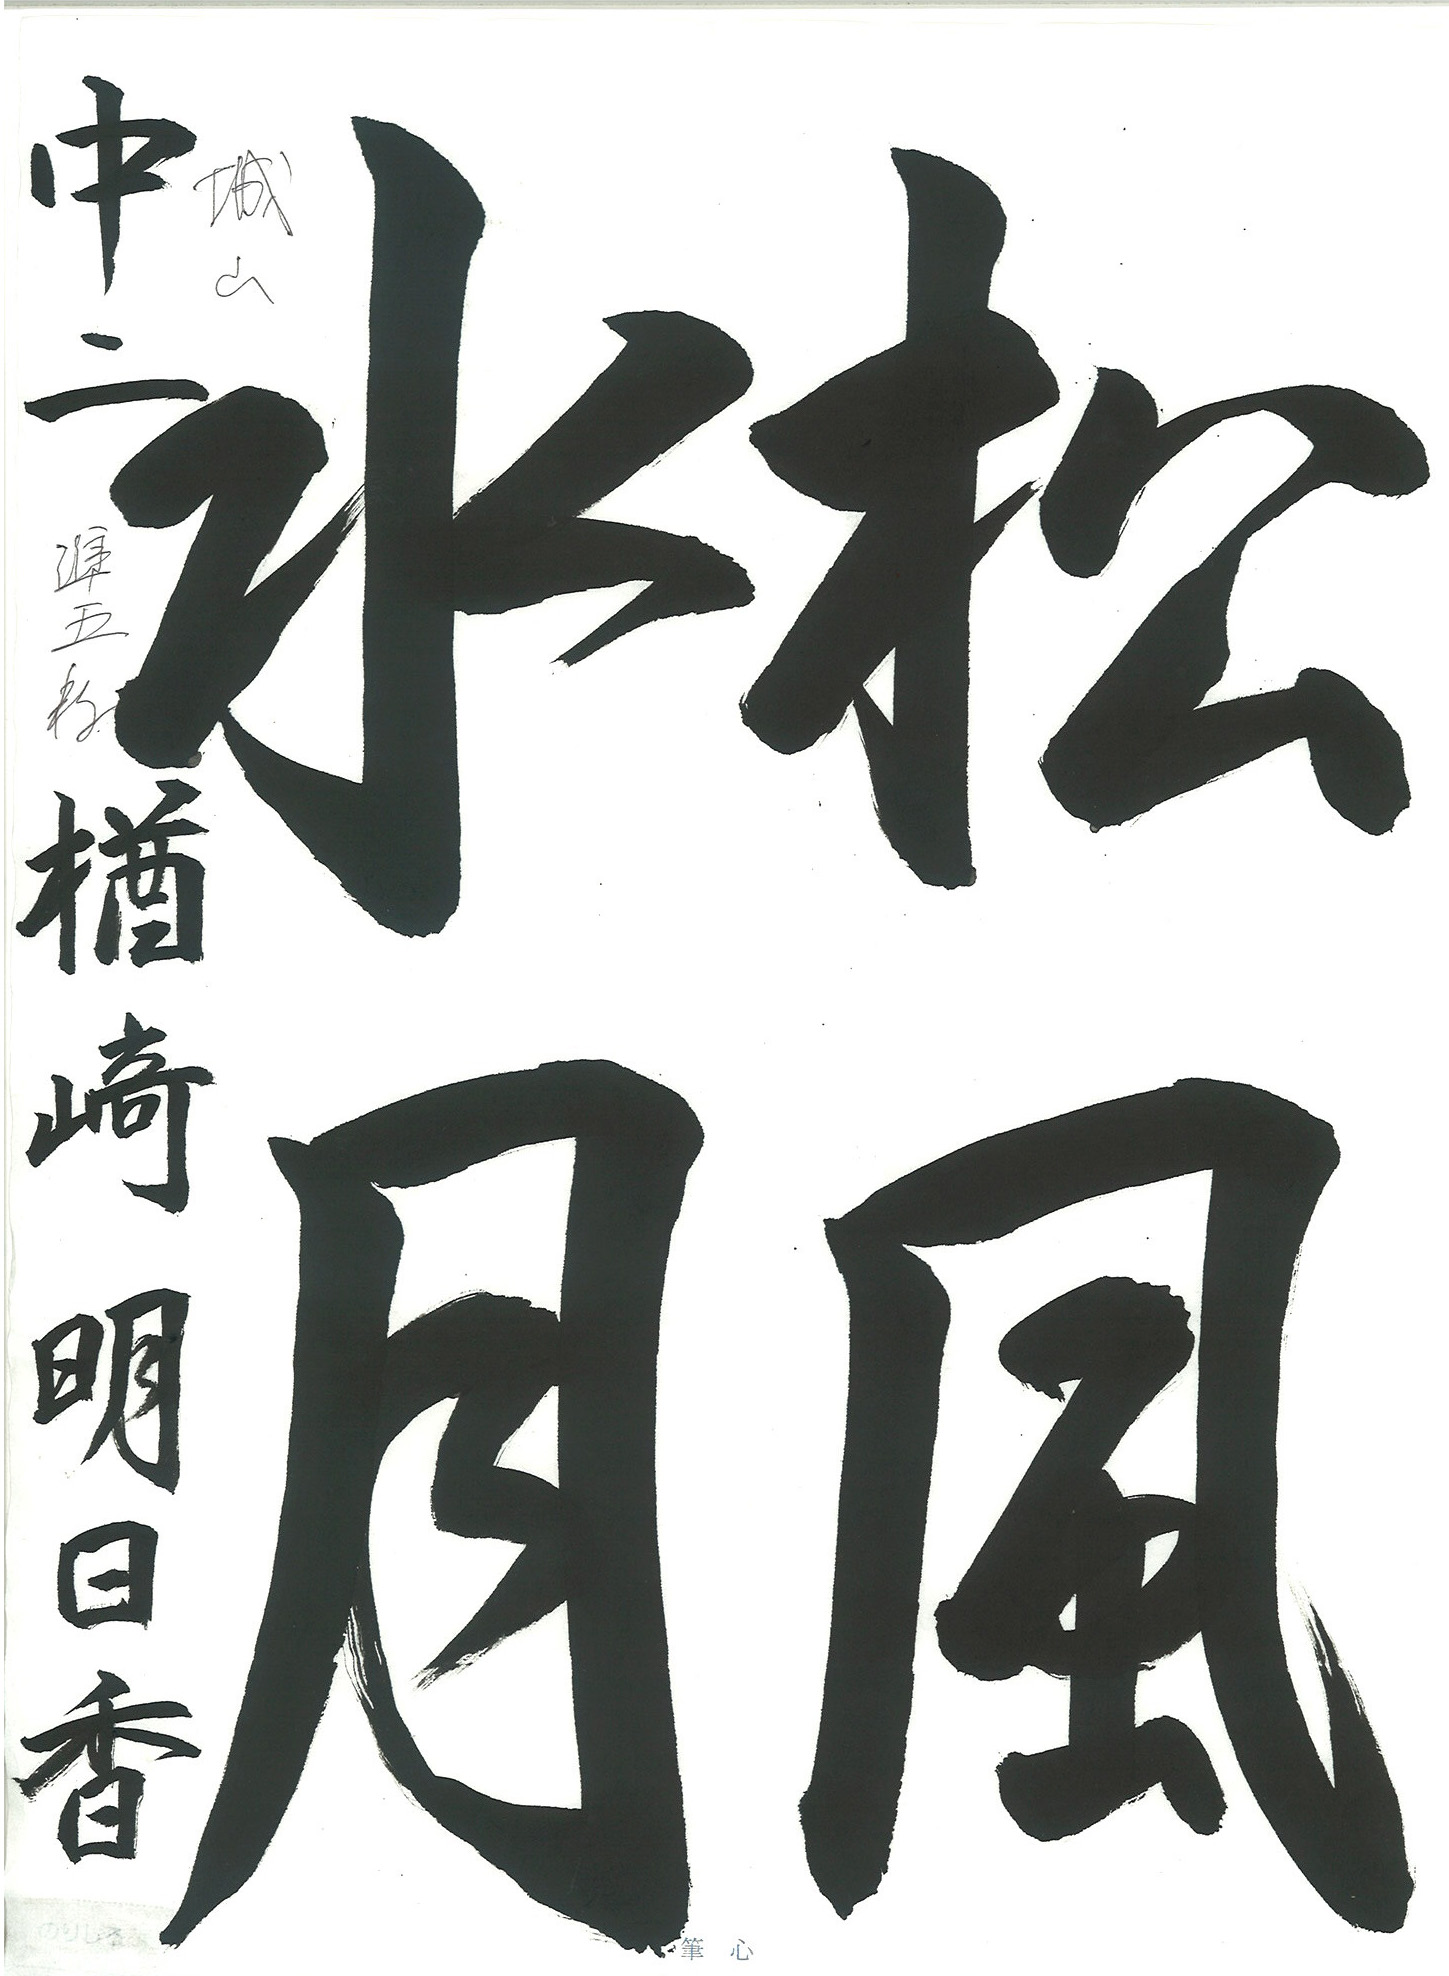 松風
水月
城山
中二 準五段 楢崎明日香
筆心
のりしろ